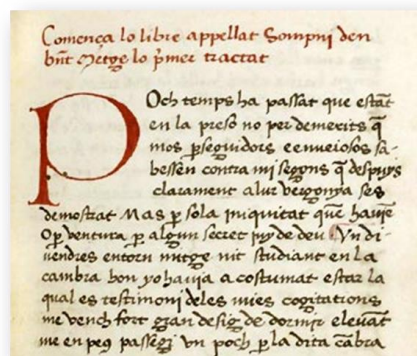 Comença lo libre appellat Sompni den
bñt Metge lo p̃mer tractat
POch temps ha passat que estãt
en la preso no per demerits q̃
mos p̱seguidors e enveiosos sa-
bessen contra mi segons q̃ despuys
clarament a lur vergonya ses
demostrat Mas p̱ sola iniquitat que hauiẽ
O p̱ ventura p̱ algun secret juy de deu . Vn di-
uendres entorn mitge nit studiant en la
cambra hon yo hauia acostumat estar la
qual es testimoni deles mies cogitations
me vench fort gran desig de dormir e leuãt
me en peus passegi vn poch p̱ la dita cãbra